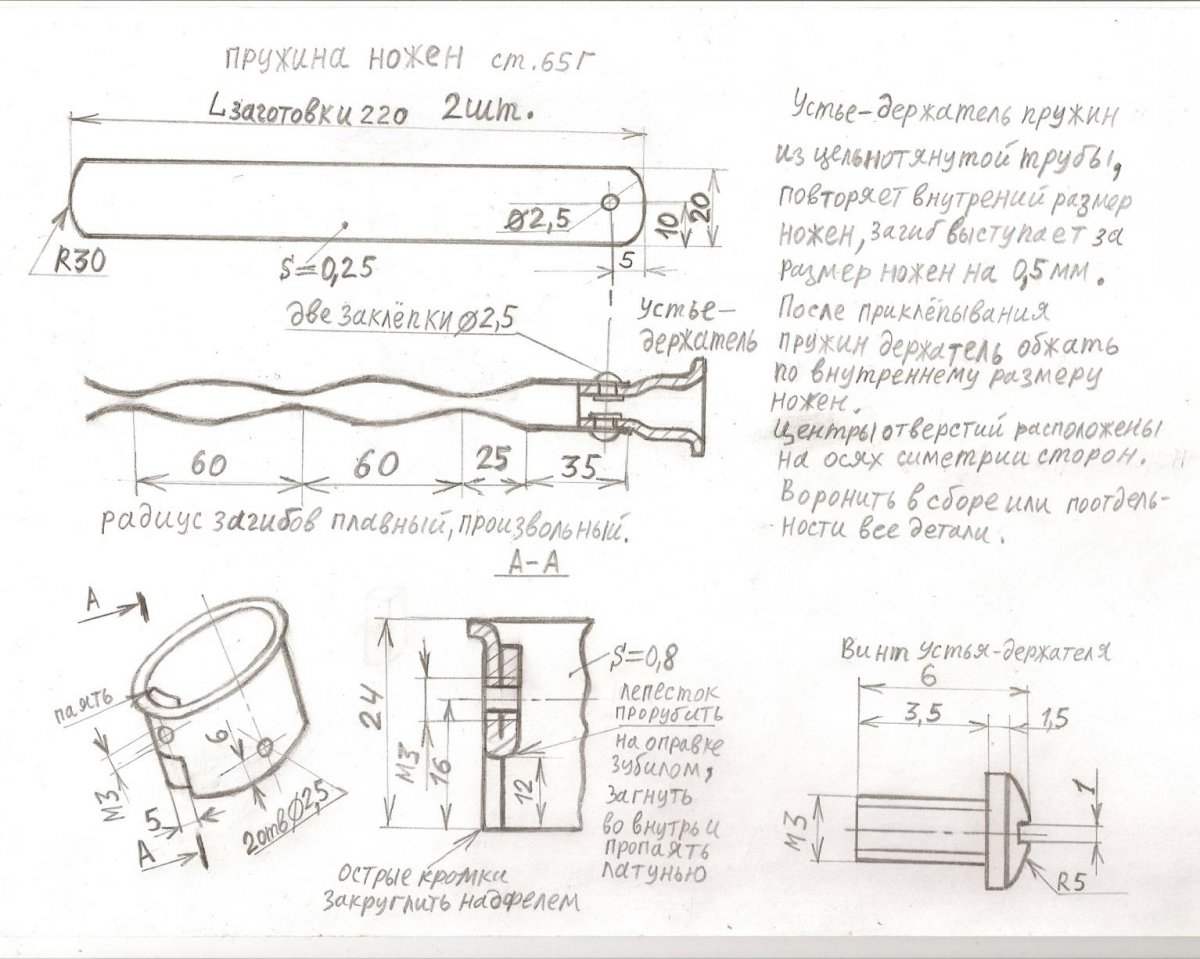 пружина ножен ст. 65Г
L заготовки 220 2шт.
R30
S=0,25
Ø2,5
10
20
5
две заклёпки Ø2,5
Устье-
держатель
60
60
25
35
радиус загибов плавный, произвольный.
Устье-держатель пружин
из цельнотянутой трубы,
повторяет внутрений размер
ножен, загиб выступает за
размер ножен на 0,5 мм.
После приклёпывания
пружин держатель обжать
по внутреннему размеру
ножен.
Центры отверстий расположены
на осях симетрии сторон.
Воронить в сборе или поотдель-
ности все детали.
А
паять
М3
5
6
2отв Ø2,5
А
А-А
24
М3
16
12
S=0,8
лепесток
прорубить
на оправке
зубилом,
загнуть
во внутрь и
пропаять
латунью
острые кромки
закруглить надфелем
Винт Устья-держателя
6
3,5
1,5
М3
1
R5